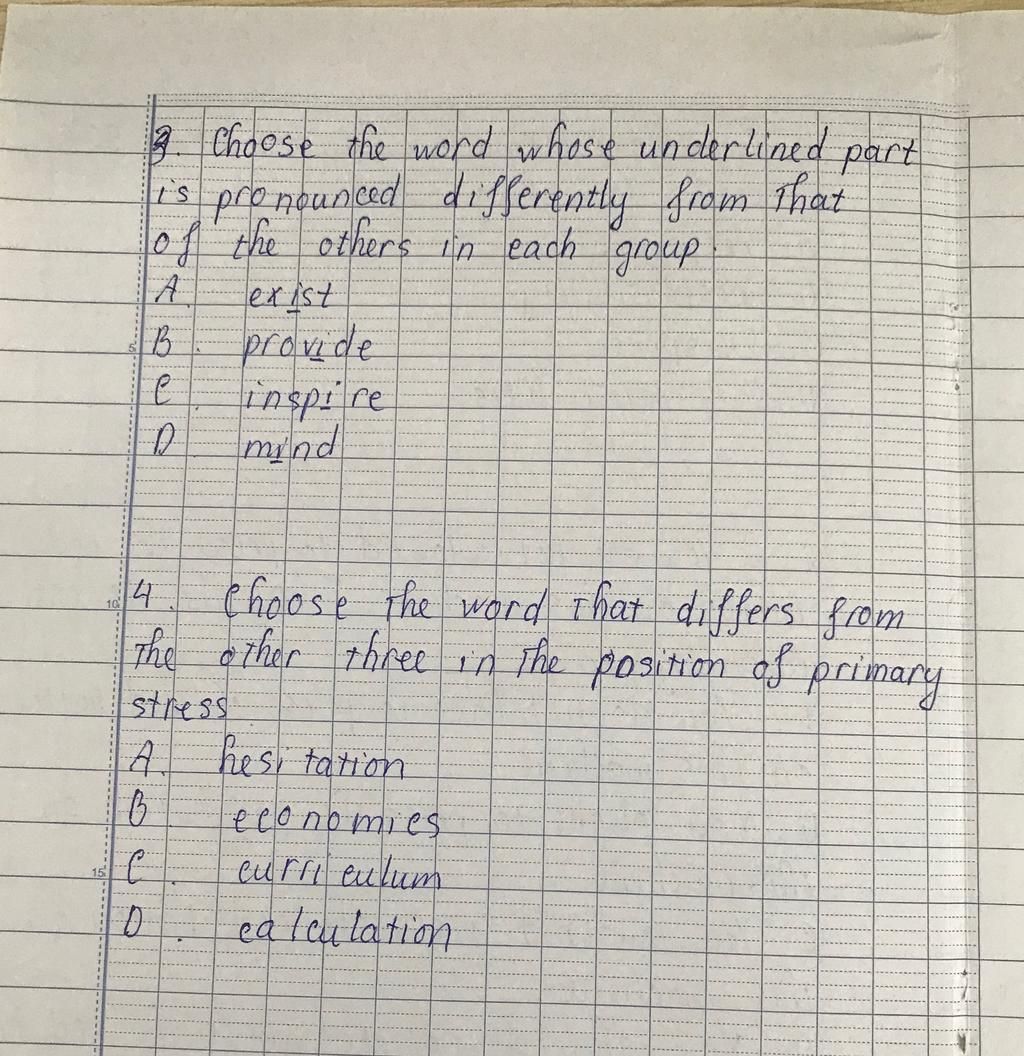 3. Choose the word whose underlined part
is pronounced differently from that
of the others in each group.
A. exist
B. provide
C. inspire
D mind
10 4. Choose the word that differs from
the other three in the position of primary
stress
A. hesitation
B economics
15 C. curriculum
D. calculation